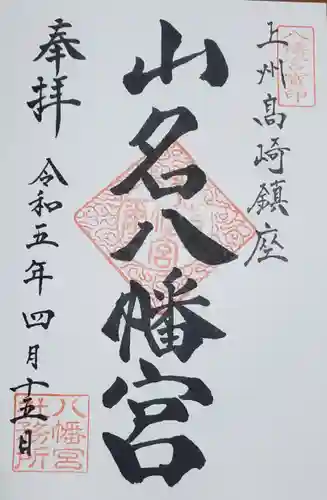 上州高崎鎮座
山名八幡宮
奉拝
令和五年四月十五日
八幡宮
社務所